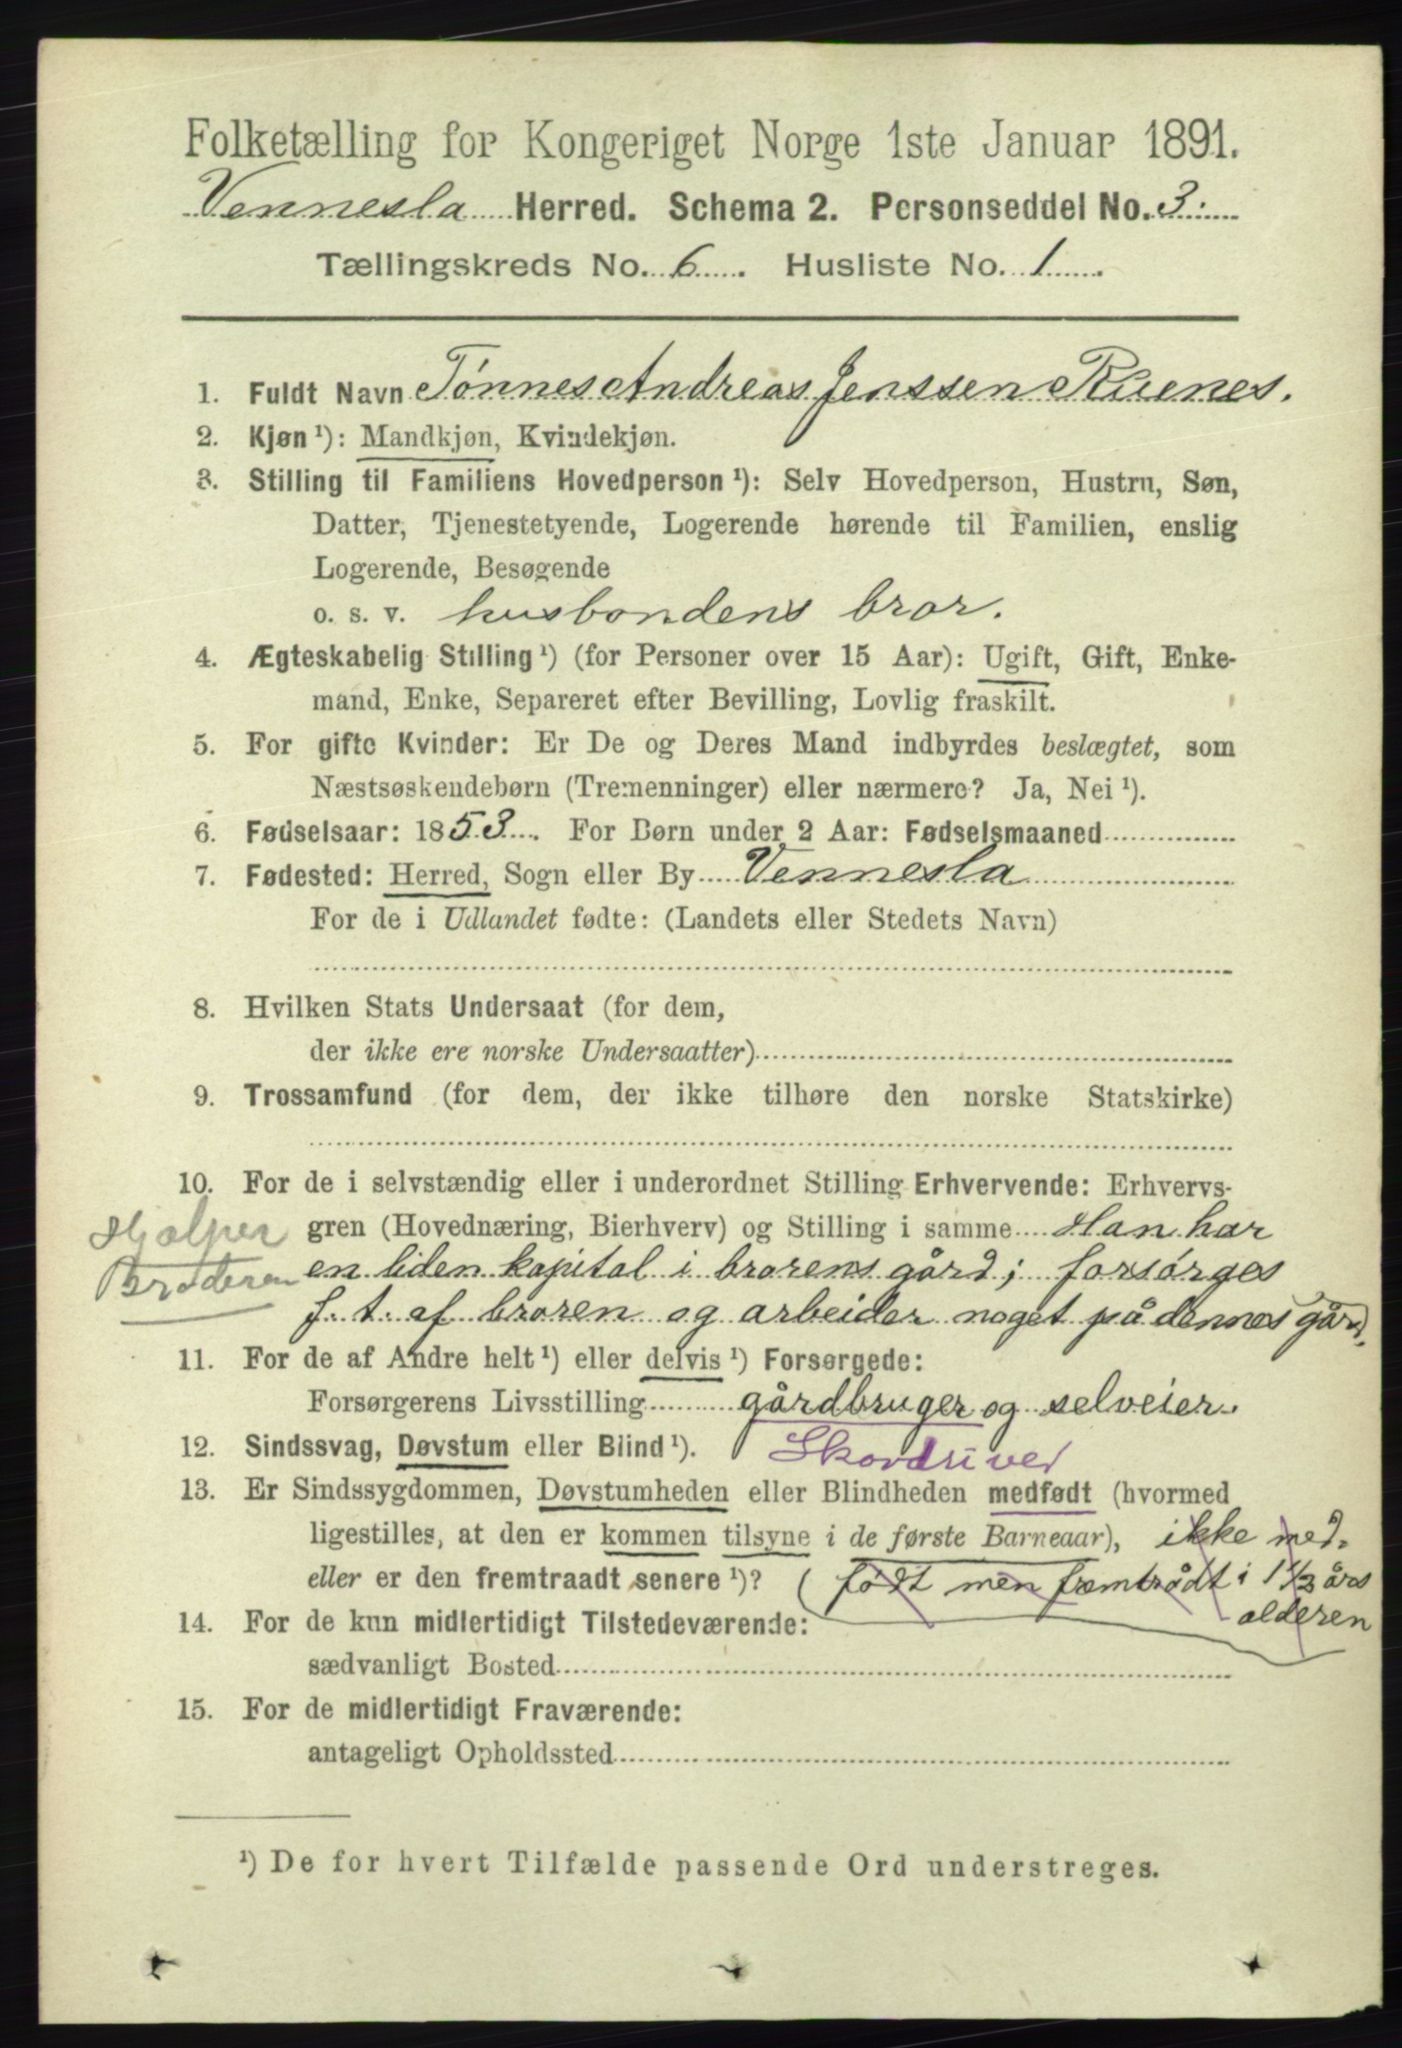 Folketælling for Kongeriget Norge 1ste Januar 1891.
Vennesla Herred. Schema 2. Personseddel No. 3.
Tællingskreds No. 6. Husliste No. 1.
1. Fuldt Navn Tønnes Andreas Jenssen Ruenes.
2. Kjøn ¹): Mandkjøn, Kvindekjøn.
3. Stilling til Familiens Hovedperson ¹): Selv Hovedperson, Hustru, Søn,
Datter, Tjenestetyende, Logerende hørende til Familien, enslig
Logerende, Besøgende
o. s. v. husbondens bror.
4. Ægteskabelig Stilling ¹) (for Personer over 15 Aar): Ugift, Gift, Enke-
mand, Enke, Separeret efter Bevilling, Lovlig fraskilt.
5. For gifte Kvinder: Er De og Deres Mand indbyrdes beslægtet, som
Næstsøskendebørn (Tremenninger) eller nærmere? Ja, Nei ¹).
6. Fødselsaar: 1853. For Børn under 2 Aar: Fødselsmaaned
7. Fødested: Herred, Sogn eller By Vennesla
For de i Udlandet fødte: (Landets eller Stedets Navn)
8. Hvilken Stats Undersaat (for dem,
der ikke ere norske Undersaatter)
9. Trossamfund (for dem, der ikke tilhøre den norske Statskirke)
10. For de i selvstændig eller i underordnet Stilling Erhvervende: Erhvervs-
gren (Hovednæring, Bierhverv) og Stilling i samme Han har
Hjælper
en liden kapital i brorens gård; forsørges
Broderen
f. t. af broren og arbeider noget på dennes gård.
11. For de af Andre helt ¹) eller delvis ¹) Forsørgede:
Forsørgerens Livsstilling gårdbruger og selveier.
12. Sindssvag, Døvstum eller Blind ¹). Skovdriver
13. Er Sindssygdommen, Døvstumheden eller Blindheden medfødt (hvormed
ligestilles, at den er kommen tilsyne i de første Barneaar), ikke med-
eller er den fremtraadt senere ¹)? (født men fremtrådt i 1 1/2 års
alderen
14. For de kun midlertidigt Tilstedeværende:
sædvanligt Bosted
15. For de midlertidigt Fraværende:
antageligt Opholdssted
¹) De for hvert Tilfælde passende Ord understreges.